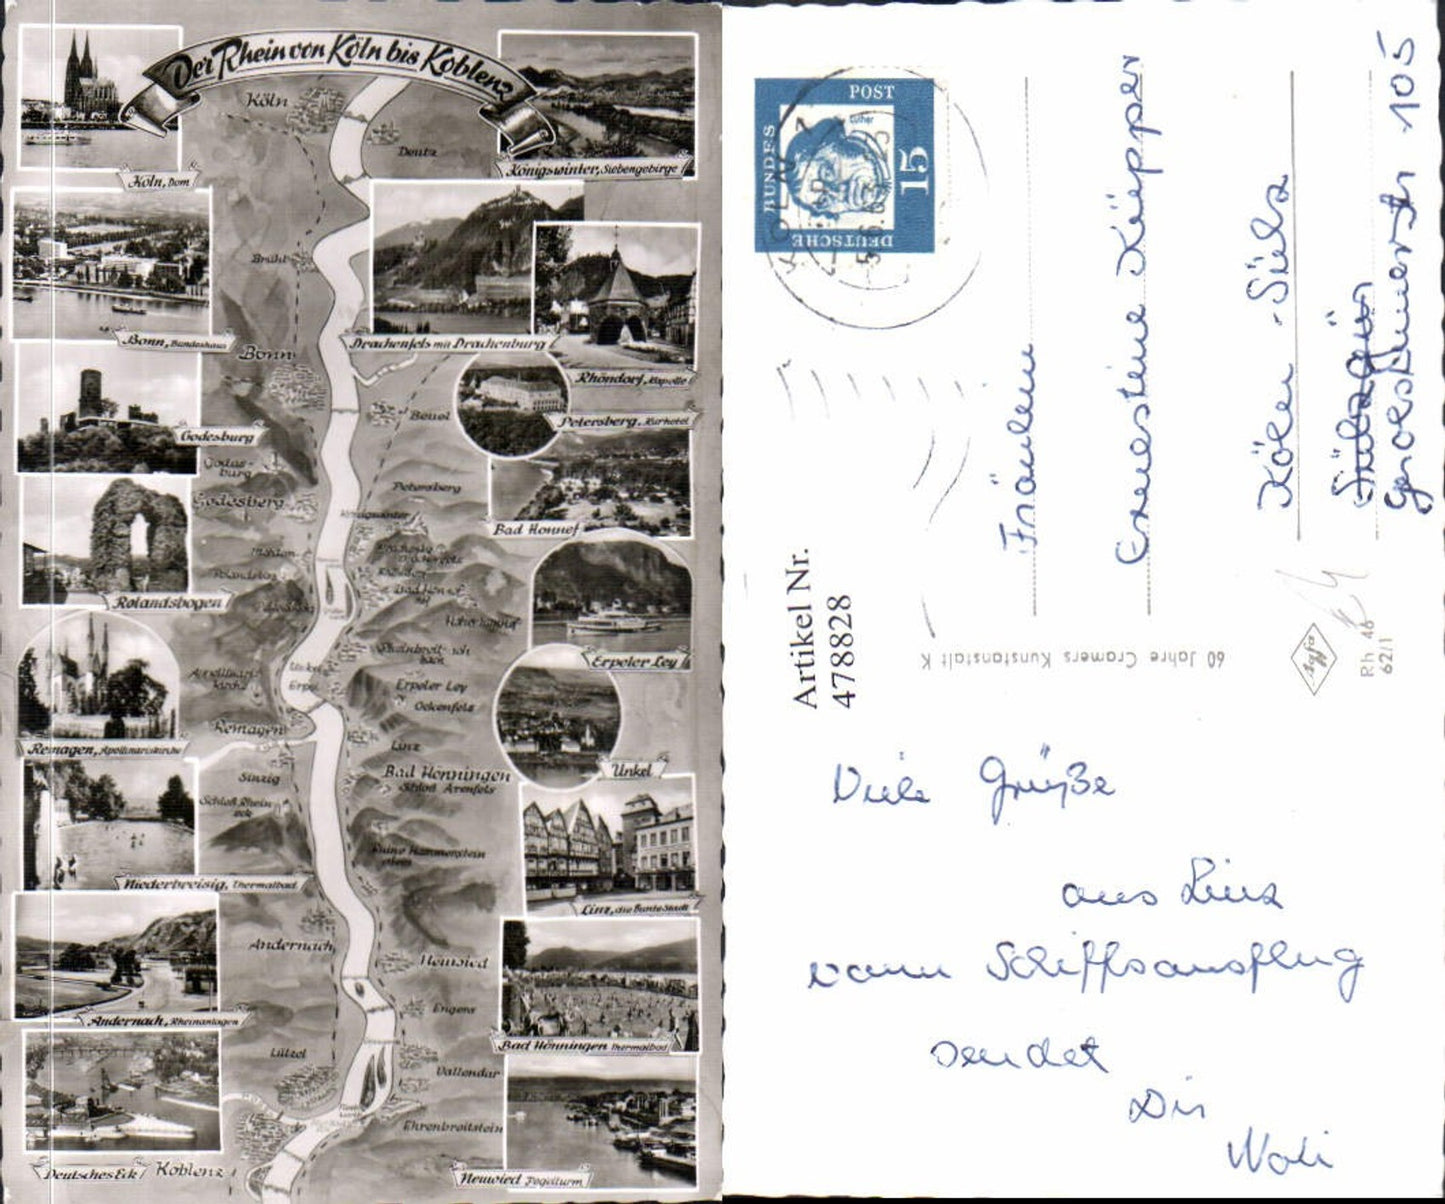 Der Rhein von Köln bis Koblenz
Köln, Dom
Köln
Deutz
Königswinter, Siebengebirge
Brühl
Bonn, Bundeshaus
Bonn
Drachenfels mit Drachenburg
Rhöndorf, Kapelle
Godesburg
Beuel
Petersberg, Kurhotel
Godes-
burg
Godesberg
Petersberg
Königswinter
Bad Honnef
Rolandsbogen
Erpeler Ley
Remagen, Apollinariskirche
Remagen
Unkel
Erpel
Erpeler Ley
Ockenfels
Linz
Unkel
Sinzig
Bad Hönningen
Schloß Arenfels
Schloß Rhein
eck
Niederbreisig, Thermalbad
Ruine Hammerstein
Linz, die Bunte Stadt
Andernach
Neuwied
Andernach, Rheinanlagen
Engers
Bad Hönningen Thermalbad
Lützel
Vallendar
Ehrenbreitstein
Deutsches Eck
Koblenz
Neuwied Pegelturm
DEUTSCHE
BUNDES
POST
15
Luther
Fräulein
Ernestine Küppen
Köln-Sülz
Gerolsteinerstr 105
Artikel Nr.
478828
60 Jahre Cramers Kunstanstalt K
Agfa
Rh 46
62/1
Viele Grüße
aus Linz
vom Schiffsausflug
sendet
Dir